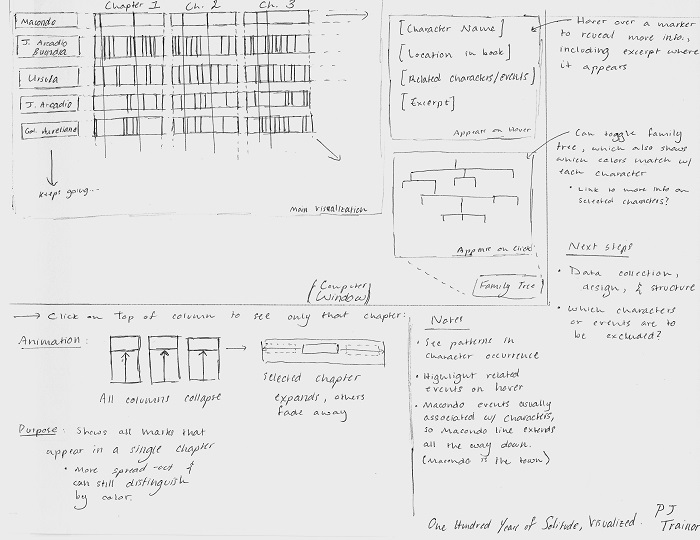 Chapter 1
Ch. 2
Ch. 3
Macondo
J. Arcadio
Buendia
Ursula
J. Arcadio
Col. Aureliano
keeps going...
main visualization
[Character Name]
[Location in book]
[Related characters/events]
[Excerpt]
Appears on Hover
Hover over a marker
to reveal more info,
including excerpt where
it appears
Can toggle family
tree, which also shows
which colors match w/
each character
• Link to more info on
selected characters?
Appears on Click
[Family Tree]
[Computer
Window]
Next steps
• Data collection,
design, & structure
• Which characters
or events are to
be excluded?
→ Click on top of column to see only that chapter:
Animation:
All columns collapse
selected chapter
expands, others
fade away
Purpose: Shows all marks that
appear in a single chapter
• More spread-out &
can still distinguish
by color.
Notes
• See patterns in
character occurrence
• Highlight related
events on hover
• Macondo events usually
associated w/ characters,
so Macondo line extends
all the way down.
(Macondo is the town)
One Hundred Years of Solitude, Visualized.
PJ
Trainor